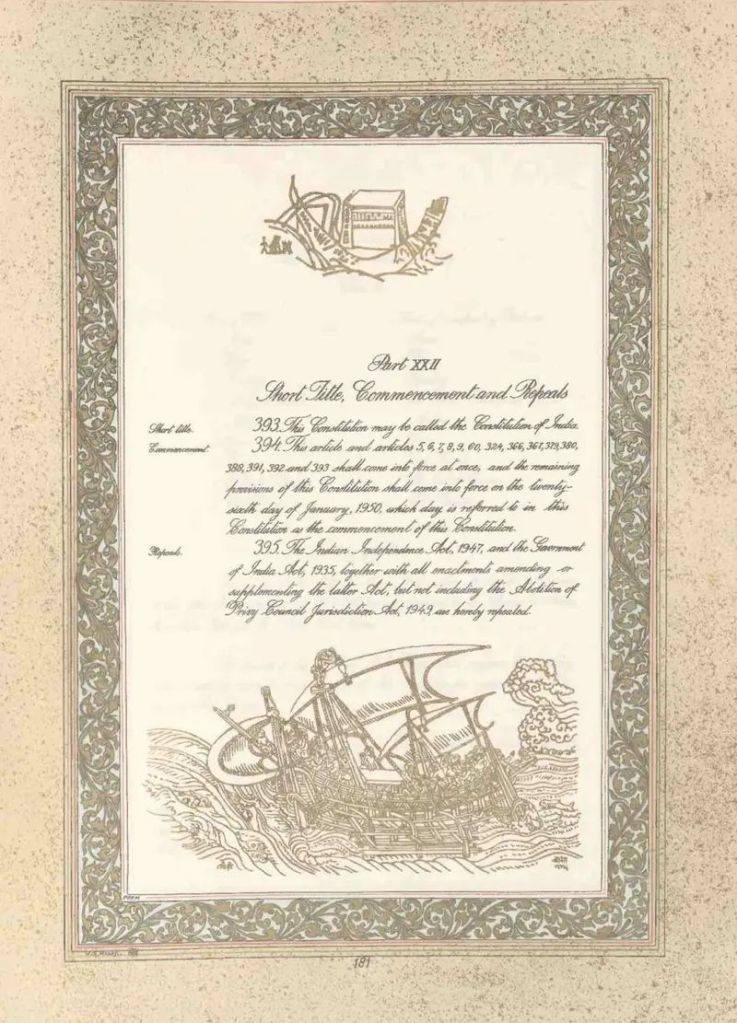 Part XXII
Short Title, Commencement and Repeals
Short title.
393. This Constitution may be called the Constitution of India.
Commencement.
394. This article and articles 5, 6, 7, 8, 9, 60, 324, 366, 367, 379, 380,
388, 391, 392 and 393 shall come into force at once, and the remaining
provisions of this Constitution shall come into force on the twenty-
sixth day of January, 1950, which day is referred to in this
Constitution as the commencement of this Constitution.
Repeals.
395. The Indian Independence Act, 1947, and the Government
of India Act, 1935, together with all enactments amending or
supplementing the latter Act, but not including the Abolition of
Privy Council Jurisdiction Act, 1949, are hereby repealed.
PREM
181